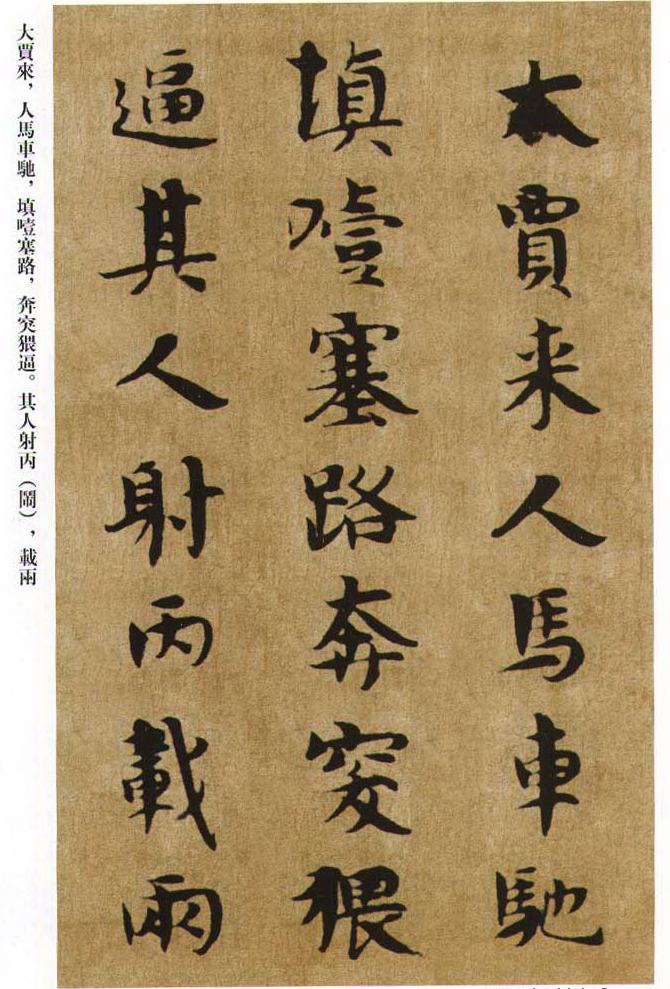 太賈来人馬車馳
填噎塞路奔突猥
逼其人射丙載兩
大賈來，人馬車馳，填噎塞路，奔突猥逼。其人射丙（鬧），載兩